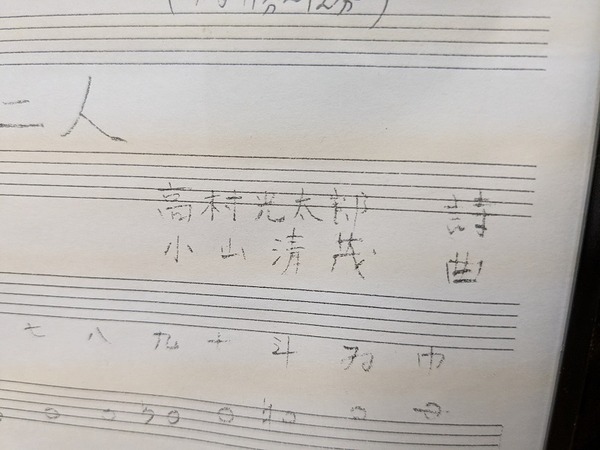 二人
高村光太郎 詩
小山清茂 曲
七 八 九 十 斗 為 巾